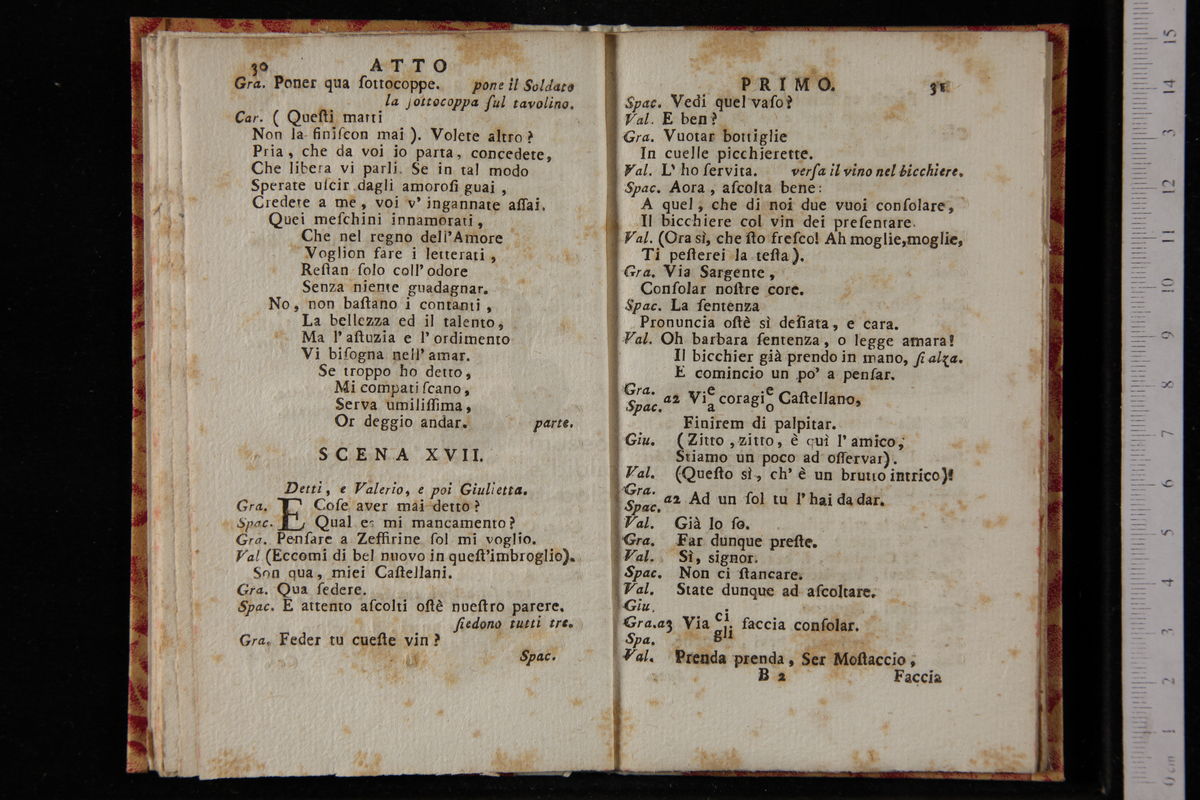 30 ATTO
Gra. Poner qua ſottocoppe. pone il Soldato
la ſottocoppa ſul tavolino.
Car. ( Queſti matti
Non la finiſcon mai ). Volete altro?
Pria, che da voi io parta, concedete,
Che libera vi parli. Se in tal modo
Sperate uſcir dagli amoroſi guai,
Credete a me, voi v' ingannate aſſai.
Quei meſchini innamorati,
Che nel regno dell'Amore
Voglion fare i letterati,
Reſtan ſolo coll' odore
Senza niente guadagnar.
No, non baſtano i contanti,
La bellezza ed il talento,
Ma l' aſtuzia e l' ordimento
Vi biſogna nell' amar.
Se troppo ho detto,
Mi compatiſcano,
Serva umiliſſima,
Or deggio andar. parte.
SCENA XVII.
Detti, e Valerio, e poi Giulietta.
Gra. E Coſe aver mai detto?
Spac. Qual es mi mancamento?
Gra. Penſare a Zeffirine ſol mi voglio.
Val (Eccomi di bel nuovo in queſt'imbroglio).
Son qua, miei Caſtellani.
Gra. Qua ſedere.
Spac. E attento aſcolti oſtè nueſtro parere.
ſiedono tutti tre.
Gra. Feder tu cueſte vin?
Spac.
PRIMO. 31
Spac. Vedi quel vaſo?
Val. E ben?
Gra. Vuotar bottiglie
In cuelle picchierette.
Val. L' ho ſervita. verſa il vino nel bicchiere.
Spac. Aora, aſcolta bene:
A quel, che di noi due vuoi conſolare,
Il bicchiere col vin dei preſentare.
Val. (Ora sì, che ſto freſco! Ah moglie, moglie,
Ti peſterei la teſta).
Gra. Via Sargente,
Conſolar noſtre core.
Spac. La ſentenza
Pronuncia oſtè sì deſiata, e cara.
Val. Oh barbara ſentenza, o legge amara!
Il bicchier già prendo in mano, ſi alza.
E comincio un po' a penſar.
Gra. e e
a2 Vi coragi Caſtellano,
Spac. a o
Finirem di palpitar.
Giu. (Zitto, zitto, è quì l' amico,
Stiamo un poco ad oſſervar).
Val. (Queſto sì, ch' è un brutto intrico)!
Gra.
a2 Ad un ſol tu l' hai da dar.
Spac.
Val. Già lo ſo.
Gra. Far dunque preſte.
Val. Sì, signor.
Spac. Non ci ſtancare.
Val. State dunque ad aſcoltare.
Giu. ci
Gra. a3 Via faccia conſolar.
Spa. gli
Val. Prenda prenda, Ser Moſtaccio,
B 2 Faccia